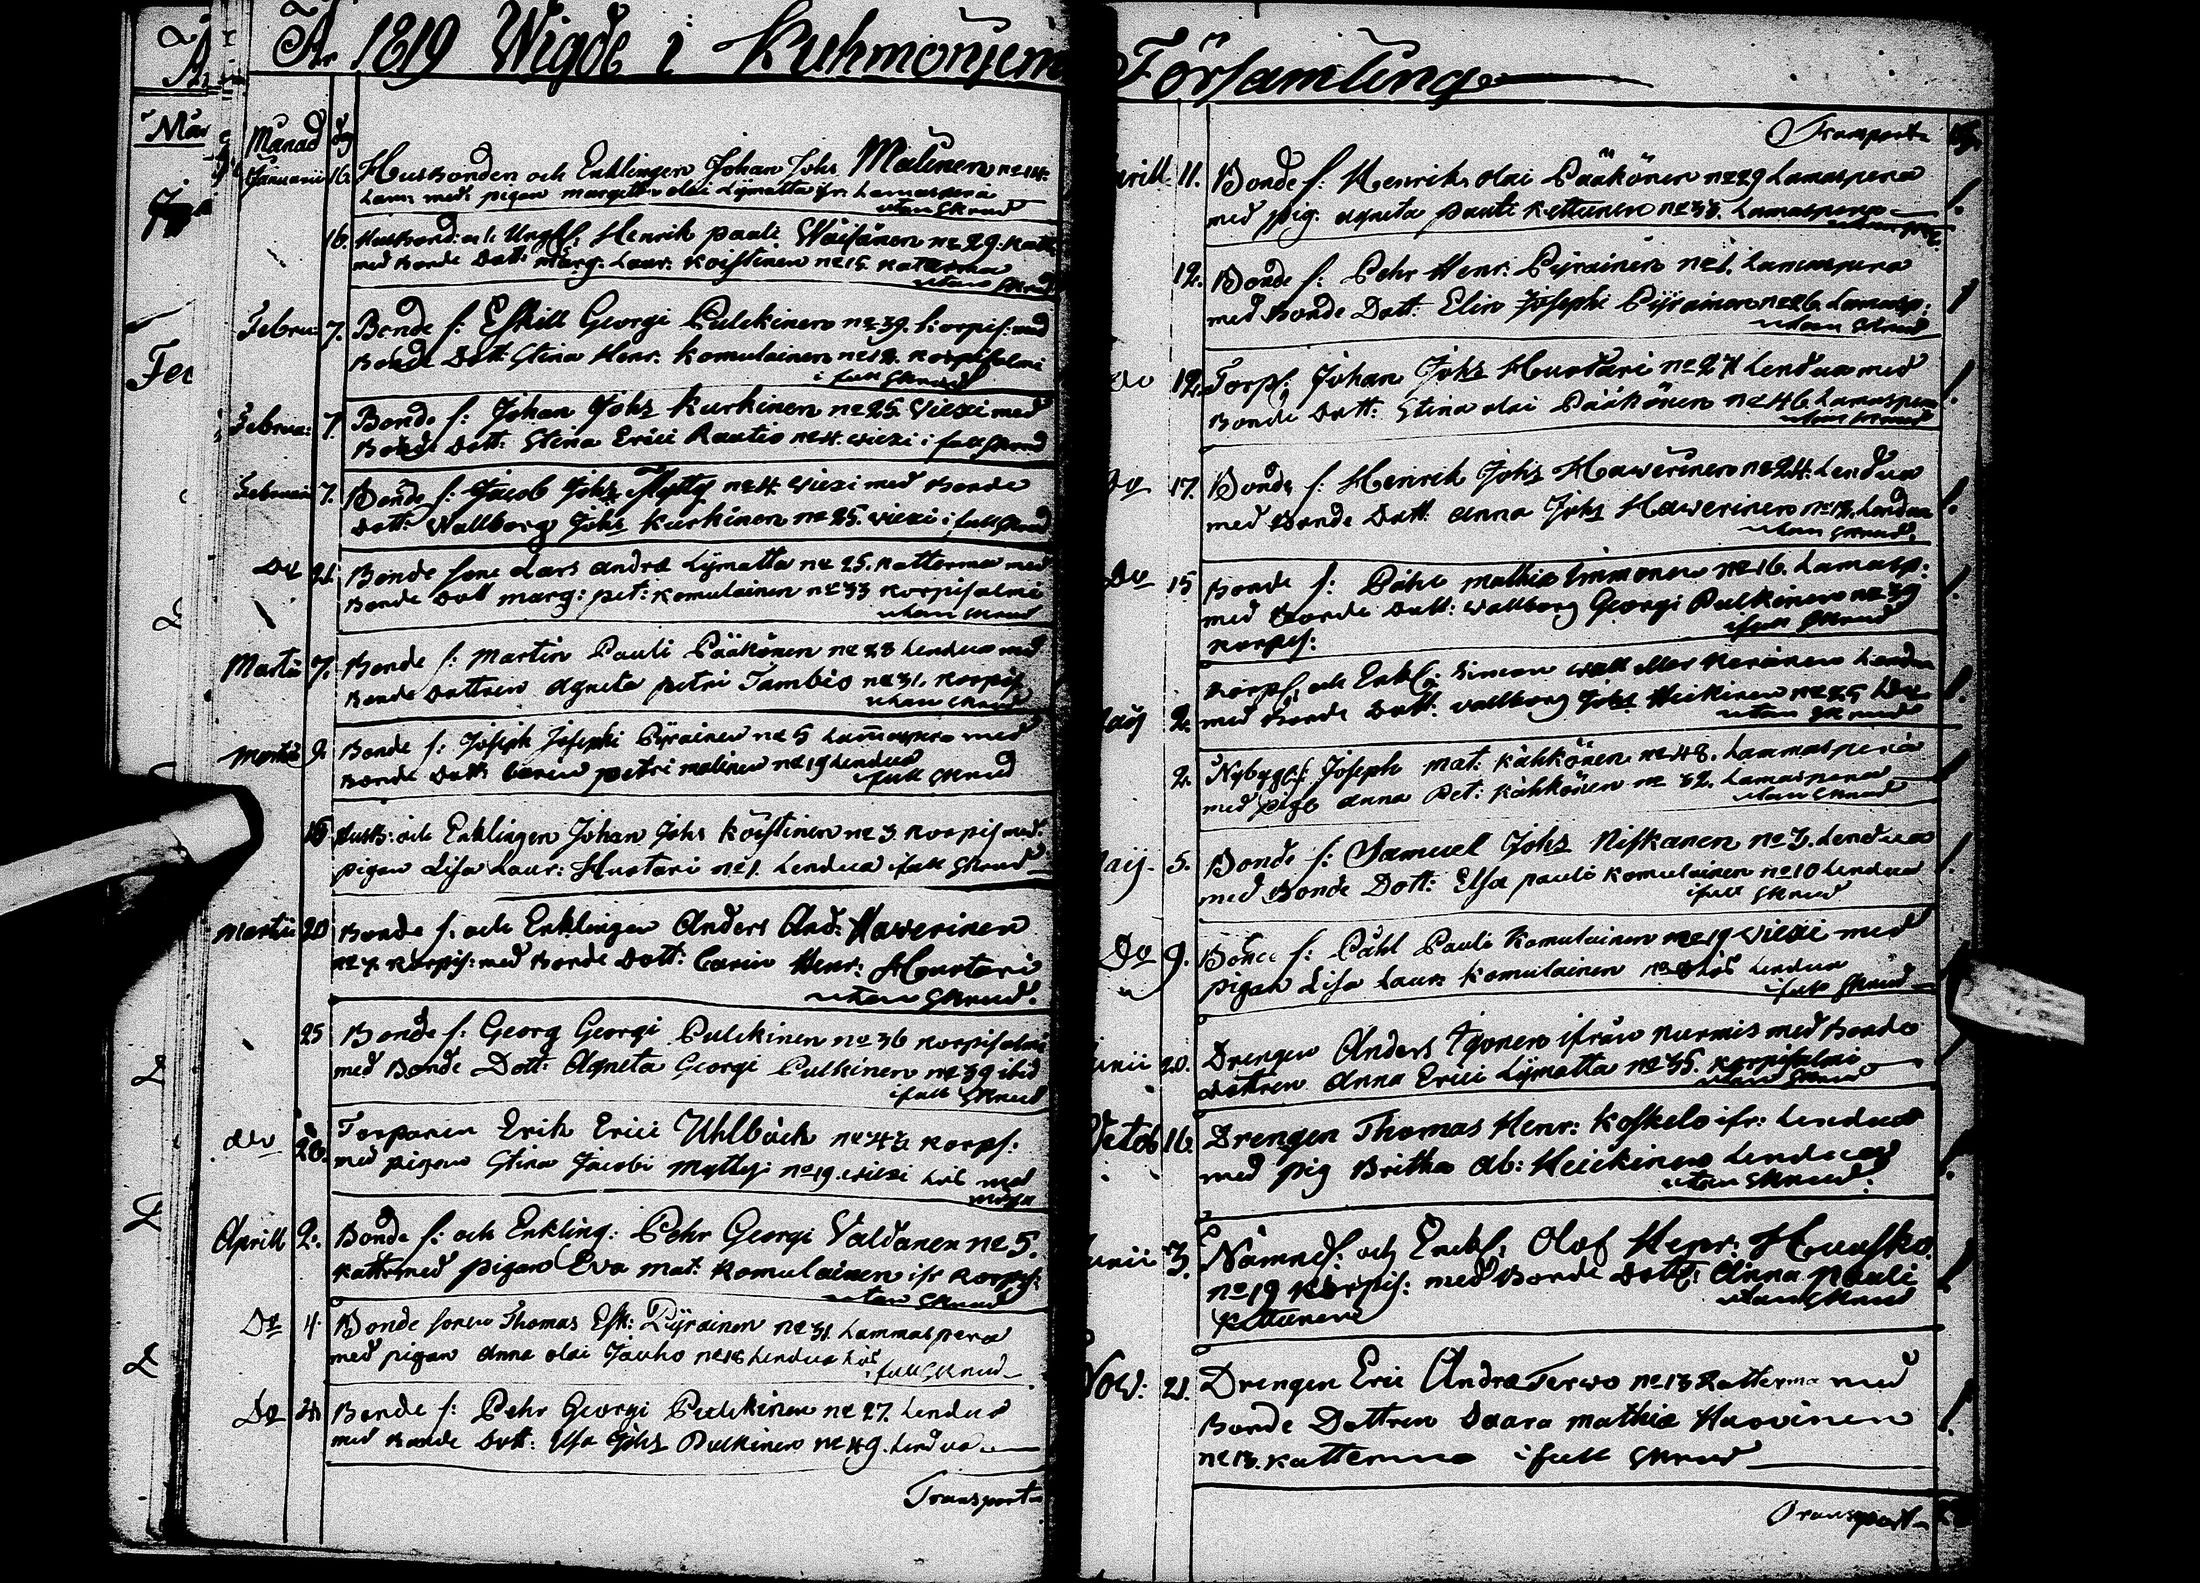 A. 1819 Wigde i Kuhmoniemi Församling
Månad dag
Januarii 16. Husbonden och Enklingen Johan Johs Malinen No 14.
Lam: med pigan margetha olai Lÿmatta ifr Lamaspera
utan Skrud
16. Husbond: och Henrik pauli Wäisänen No 29. Katt
med Bonde Dott: Marg: Laur: Koistinen No 15 Katerma
utan Skrud
Februa 7. Bonde s: Eskill Georgi Pulckinen No 39. Korpis: med
Bonde Dott: Stina Henr: Komulainen No 12. Korpisalmi
i full Skrud
Februa: 7. Bonde s: Johan Johs Kurkinen No 25. Viexi med
Bonde Dott: Stina Erici Rautio No 4. viexi i full Skrud
Februarii 7. Bonde s: Jacob Johs No 4 Viexi med Bonde
Dott: Wallborg Johs Kurkinen No 25. viexi i full Skrud
Do 21. Bonde sone Lars andræ Lÿmatta No 25. Katterma med
Bonde Dott marg: pet: Komulainen No 33 Korpisalmi
utan Skrud
Martii 7. Bonde s: Martin Pauli Pääkönen No 23 Lendua med
Bonde Dottren Agneta petri Tambio No 31. Korpis
utan Skrud
Martii 9. Bonde s: Joseph Josephi Pyrainen No 5 Lammaspera med
Bonde Dott: Caren petri malinen No 19 Lendua
i full Skrud
Husb: och Enklingen Johan Johs Köistinen No 3 Korpis med
pigan Lisa Laur: Hurtari No 1. Lendua i full Skrud
Martii 20 Bonde s: och Enklingen Anders And: Hawerinen
No 7. Korpis: med Bonde Dott: Carin Henr: Hurtari
utan Skrud.
25 Bonde s: Georg Georgi Pulckinen No 36 Korpisalmi
med Bonde Dott: Agneta Georgi Pulkinen No 39 ibid
i full Skrud
28. Torparen Erik Erici Uhlbäck Korps:
med pigan Stina Jacobi Myttyi No 19. viexi
Aprill 2. Bonde s: och Enkling: Pehr Georgi Valdanen No 5.
Katt: med pigan Eva mat: Komulainen ifr Korpis:
utan Skrud
Do 4. Bonde sonen Thomas Esk: Pÿrainen No 31. Lammaspera
med pigan Anna olai Jauho No 18 Lendua
i full Skrud
Do Bonde s: Pehr Georgi Pulckinen No 27. Lendua
med Bonde Dott: Elsa Johs Pulkinen No 49. Lendua
Transport
Transport
Aprill 11. Bonde s: Henrik olai Pääkönen No 29 Lamaspera
med pig: agneta pauli Kettunen No 35. Lamaspera
12. Bonde s: Pehr Henr: Pÿrainen No 1. Lamaspera
med Bonde Dott: Elin Josephi Pÿrainen No 26. Lamasp:
utan Skrud
Do 12. Torps: Johan Johs Hurtari No 27 Lendua med
Bonde Dott: Stina olai Pääkönen No 46. Lamaspera
utan Skrud
Do 17. Bonde s: Henrik Johs Hawerinen No 24. Lendua
med Bonde Dott: anna Johs Hawerinen No 18. Lendua
utan Skrud.
Do 15 Bonde s: Påhl mathiæ Immonen No 16. Lamasp:
med Bonde Dott: wallborg Georgi Pulkinen No 39
Korpis:
i full Skrud
Maij 2. Torps, och Enkl: Simon Keränen Lendua
med Bonde Dott: wallborg Johs Heikinen No 25 Do
utan Skrud
2. Nybygg: s: Joseph mat: Kähkönen No 48. Lammasperä
med pig: anna Pet: Kähkönen No 32. Lamaspera
utan Skrud
Maij. 5. Bonde s: Samuel Johs Niskanen No 3. Lendua
med Bonde Dott: Elsa pauli Komulainen No 10 Lendua
i full Skrud
Do 9. Bonde s: Påhl Pauli Komulainen No 19 Viexi med
pigan Lisa Laur: Komulainen Lendua
i full Skrud
Junii 20. Drengen Anders ifrån Nurmis med Bonde
Dottren Anna Erici Lÿmatta No 35. Korpisalmi
utan Skrud
Octob 16. Drengen Thomas Henr: Koskelo ifr: Lendua
med pig Britha Ab: Heickinen Lendua
utan Skrud.
Junii 3. Nämnd: och Enkl: Olof Henr: Huusko.
No 19 Korpis: med Bonde Dott: Anna Pauli
Kettunen
utan Skrud
Nov: 21. Drengen Eric Andræ Terwo No 13 Katterma med
Bonde Dottren Saara mathiæ Huovinen
No 13. Katterma i full Skrud
Transport